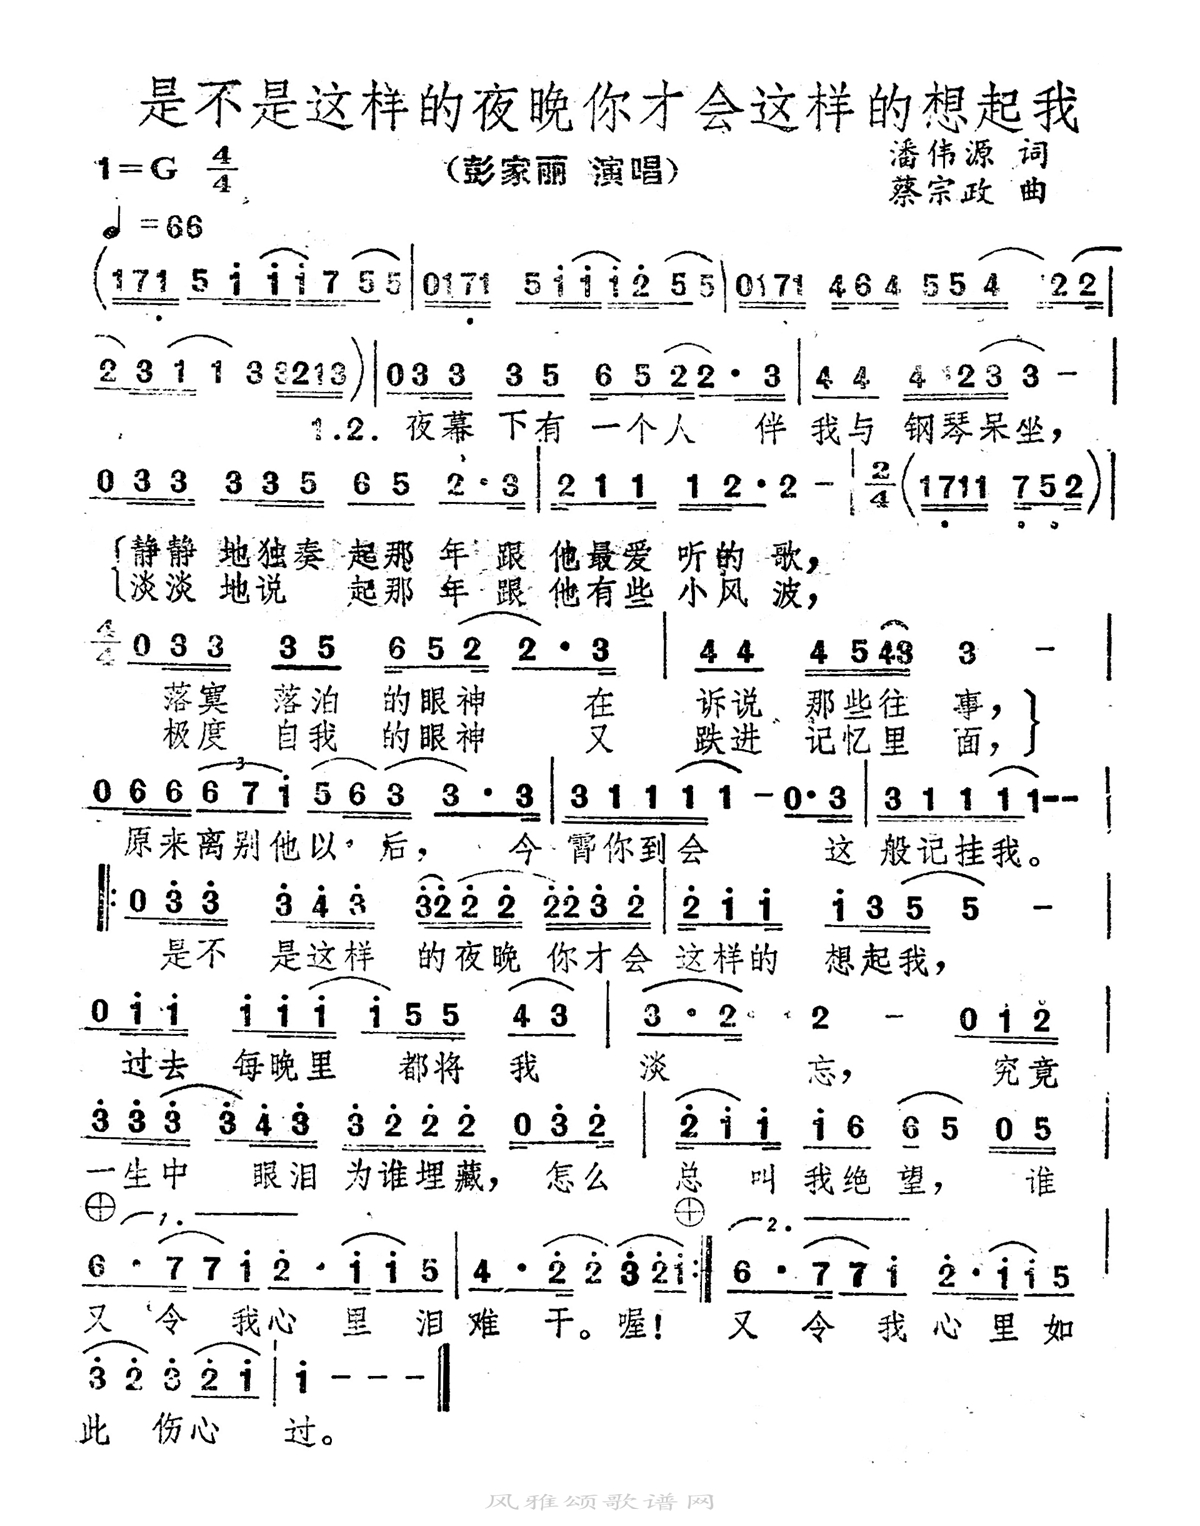 是不是这样的夜晚你才会这样的想起我
1=G 4/4
（彭家丽 演唱）
潘伟源 词
蔡宗政 曲
♩=66
(171 5 i i i 7 5 5 | 0171 5 i i i 2 5 5 | 0171 4 6 4 5 5 4 2 2 |
2 3 1 1 3 3213) | 0 3 3 3 5 6 5 2 2 · 3 | 4 4 4 1 2 3 3 - |
1.2. 夜幕 下有 一个人 伴 我与 钢琴呆坐，
0 3 3 3 3 5 6 5 2 · 3 | 2 1 1 1 2 · 2 - | 2/4 (1711 7 5 2) |
静静 地独奏 起那 年 跟 他最爱 听的 歌，
淡淡 地说 起那 年 跟 他有些 小风 波，
4/4 0 3 3 3 5 6 5 2 2 · 3 | 4 4 4 5 43 3 - |
落寞 落泊 的眼神 在 诉说 那些往 事，
极度 自我 的眼神 又 跌进 记忆里 面，
3
0 6 6 6 7 i 5 6 3 3 · 3 | 3 1 1 1 1 1 - 0 · 3 | 3 1 1 1 1 1 - - |
原来离别他以 后， 今 霄你到会 这 般记挂我。
‖: 0 3 3 3 4 3 3 2 2 2 2 2 3 2 | 2 i i i 3 5 5 5 - |
是不 是这样 的夜晚 你才会 这样的 想起我，
0 i i i i i i 5 5 4 3 | 3 · 2 2 - 0 i 2 |
过去 每晚里 都将 我 淡 忘， 究竟
3 3 3 3 4 3 3 2 2 2 0 3 2 | 2 i i i 6 6 5 0 5 |
一生中 眼泪 为谁埋藏， 怎么 总 叫我绝望， 谁
1. 2.
6 · 7 7 i 2 · i i 5 | 4 · 2 2 3 2 i :‖ 6 · 7 7 i 2 · i i 5 |
又 令 我心 里 泪 难 干。喔！ 又 令 我心里如
3 2 3 2 i | i - - - ‖
此 伤心 过。
风雅颂歌谱网